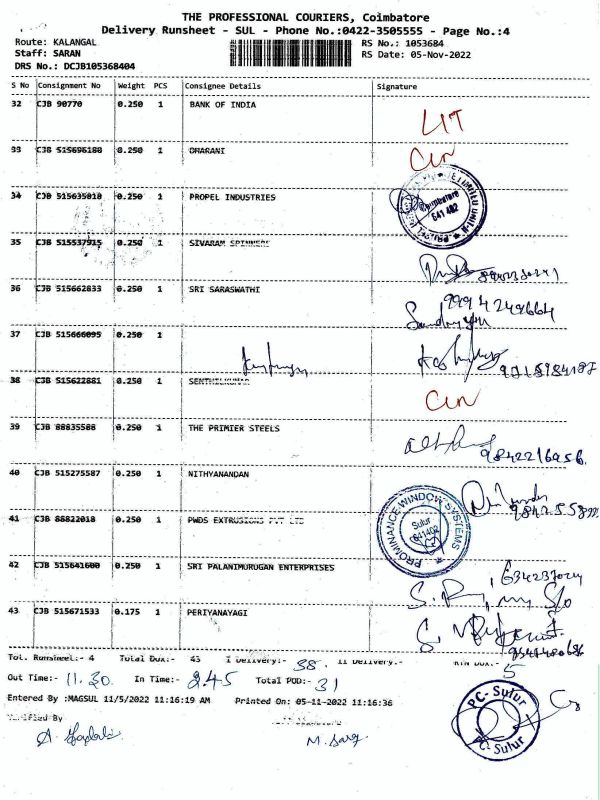 THE PROFESSIONAL COURIERS, Coimbatore
Delivery Runsheet - SUL - Phone No.:0422-3505555 - Page No.:4
Route: KALANGAL RS No.: 1053684
Staff: SARAN RS Date: 05-Nov-2022
DRS No.: DCJB105368404
S No Consignment No Weight PCS Consignee Details Signature
32 CJB 90770 0.250 1 BANK OF INDIA
33 CJB 515696180 0.250 1 DHARANI
34 CJB 515635018 0.250 1 PROPEL INDUSTRIES
Coimbatore
641 402
35 CJB 515537915 0.250 1 SIVARAM SPINNERS
36 CJB 515662833 0.250 1 SRI SARASWATHI
9994249664
37 CJB 515666095 0.250 1
38 CJB 515622881 0.250 1 SENTHILKUMAR
39 CJB 88835588 0.250 1 THE PRIMIER STEELS
9842216956
40 CJB 515275587 0.250 1 NITHYANANDAN
PROMINANCE WINDOW SYSTEMS
Sulur
641402
41 CJB 88822018 0.250 1 PWDS EXTRUSIONS PVT LTD
42 CJB 515641600 0.250 1 SRI PALANIMURUGAN ENTERPRISES
43 CJB 515671533 0.175 1 PERIYANAYAGI
Tot. Runsheet:- 4 Total Dox:- 43 I Delivery:- 38. II Delivery:- RTN Dox:- 5
Out Time:- 11.30 In Time:- 2.45 Total POD:- 31
Entered By :MAGSUL 11/5/2022 11:16:19 AM Printed On: 05-11-2022 11:16:36
Verified By
PC- Sulur
PC- Sulur